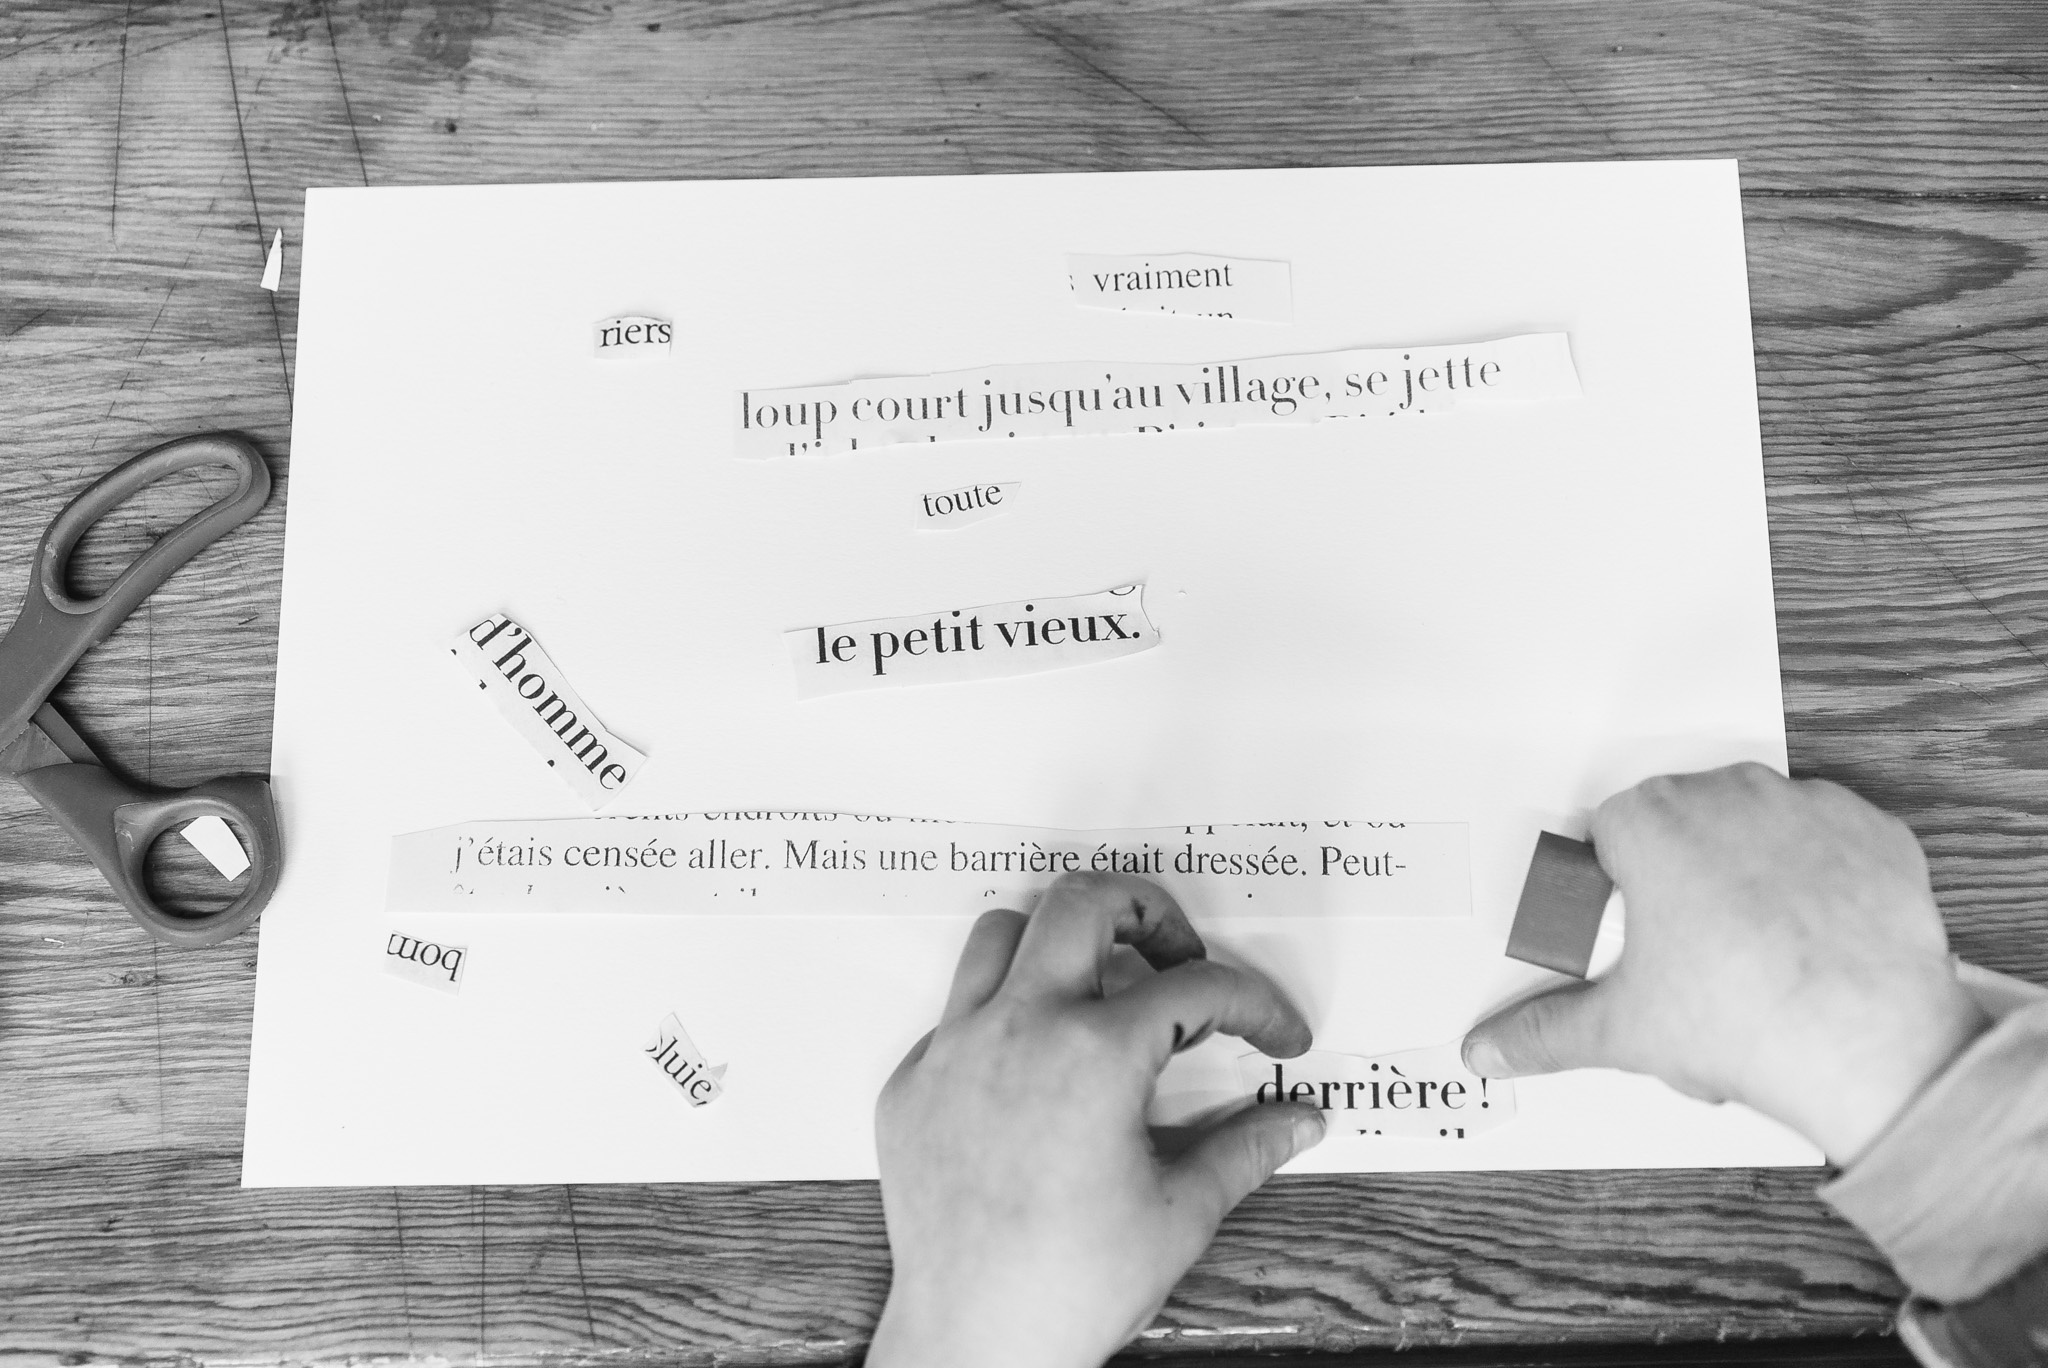 vraiment
riers
loup court jusqu'au village, se jette
toute
le petit vieux.
d'homme
j'étais censée aller. Mais une barrière était dressée. Peut-
bom
luie,
derrière !